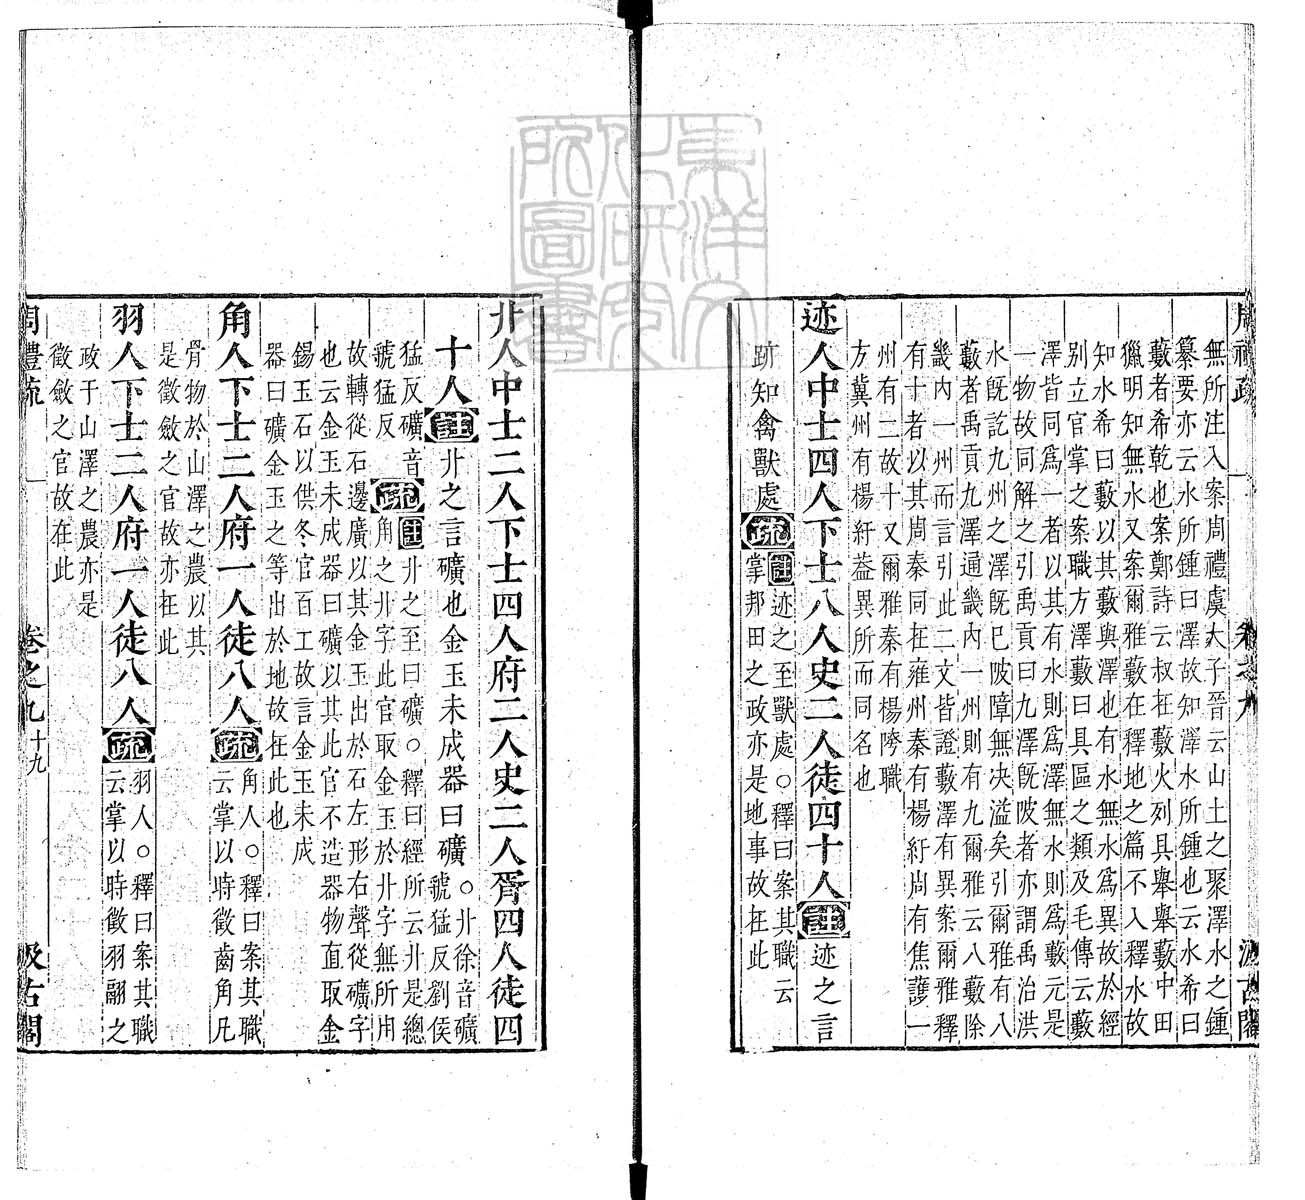 無所注入案周禮虞大子晉云山土之聚澤水之鍾
纂要亦云水所鍾曰澤故知澤水所鍾也云水希曰
藪者希乾也案鄭詩云叔在藪火列具舉舉藪中田
獵明知無水又案爾雅藪在釋地之篇不入釋水故
知水希曰藪以其藪與澤也有水無水為異故於經
別立官掌之案職方澤藪曰具區之類及毛傳云藪
澤皆同為一者以其有水則為澤無水則為藪元是
一物故同解之引禹貢曰九澤旣陂者亦謂禹治洪
水旣訖九州之澤旣已陂障無决溢矣引爾雅有八
藪者禹貢九澤通畿內一州則有九爾雅云八藪除
畿內一州而言引此二文皆證藪澤有異案爾雅釋
有十者以其周秦同在雍州秦有楊紆周有焦護一
州有二故十又爾雅秦有楊陓職
方冀州有楊紆葢異所而同名也
迹人中士四人下士八人史二人徒四十人註迹之言
跡知禽獸處疏註迹之至獸處○釋曰案其職云
掌邦田之政亦是地事故在此
卝人中士二人下士四人府二人史二人胥四人徒四
十人註卝之言礦也金玉未成器曰礦○卝徐音礦
虢猛反劉侯
猛反礦音
虢猛反疏註卝之至曰礦○釋曰經所云卝是總
角之卝字此官取金玉於卝字無所用
故轉從石邊廣以其金玉出於石左形右聲從礦字
也云金玉未成器曰礦以其此官不造器物直取金
錫玉石以供冬官百工故言金玉未成
器曰礦金玉之等出於地故在此也
角人下士二人府一人徒八人疏角人○釋曰案其職
云掌以時徵齒角凡
骨物於山澤之農以其
是徵斂之官故亦在此
羽人下士二人府一人徒八人疏羽人○釋曰案其職
云掌以時徵羽翮之
政于山澤之農亦是
徵斂之官故在此
周禮疏 卷之九 十九 汲古閣